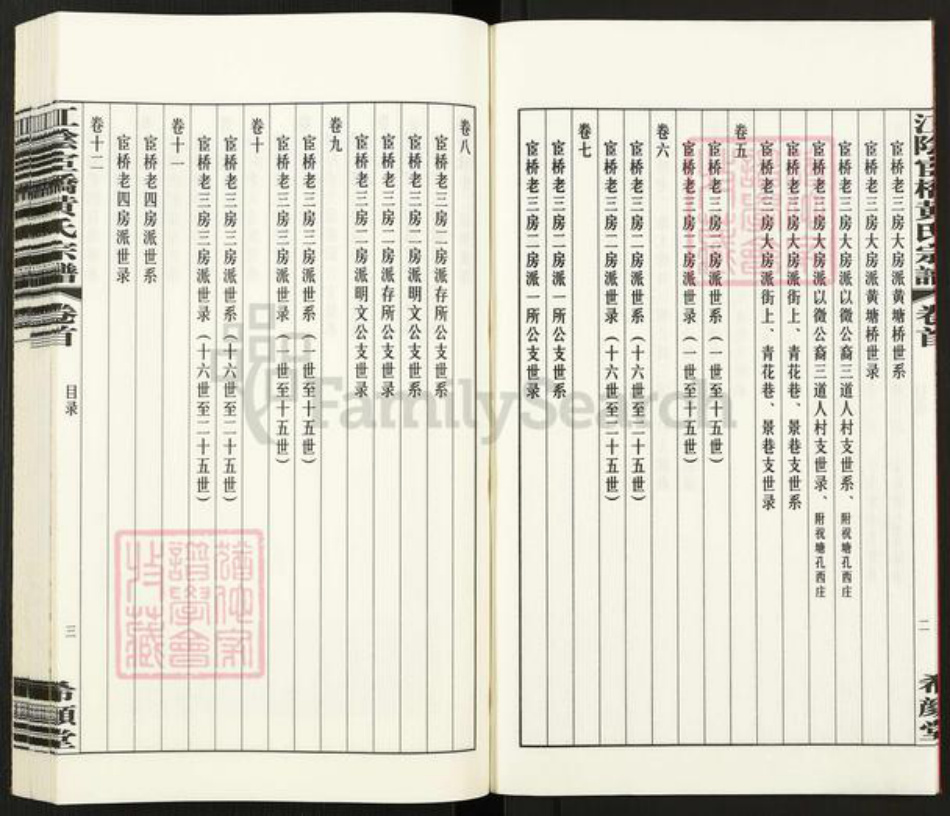 江陰宦橋黄氏宗譜
卷首
二
希顔堂
宦桥老三房大房派黄塘桥世系
宦桥老三房大房派黄塘桥世录
宦桥老三房大房派以微公裔三道人村支世系、附祝塘孔西庄
宦桥老三房大房派以微公裔三道人村支世录、附祝塘孔西庄
宦桥老三房大房派街上、青花巷、景巷支世系
宦桥老三房大房派街上、青花巷、景巷支世录
卷五
宦桥老三房二房派世系（一世至十五世）
宦桥老三房二房派世录（一世至十五世）
卷六
宦桥老三房二房派世系（十六世至二十五世）
宦桥老三房二房派世录（十六世至二十五世）
卷七
宦桥老三房二房派一所公支世系
宦桥老三房二房派一所公支世录
卷八
宦桥老三房二房派存所公支世系
宦桥老三房二房派明文公支世系
宦桥老三房二房派存所公支世录
宦桥老三房二房派明文公支世录
卷九
宦桥老三房三房派世系（一世至十五世）
宦桥老三房三房派世录（一世至十五世）
卷十
宦桥老三房三房派世系（十六世至二十五世）
宦桥老三房三房派世录（十六世至二十五世）
卷十一
宦桥老四房派世系
宦桥老四房派世录
卷十二
江陰宦橋黄氏宗譜
卷首
目录
三
希顔堂
譜學會
收藏
FamilySearch